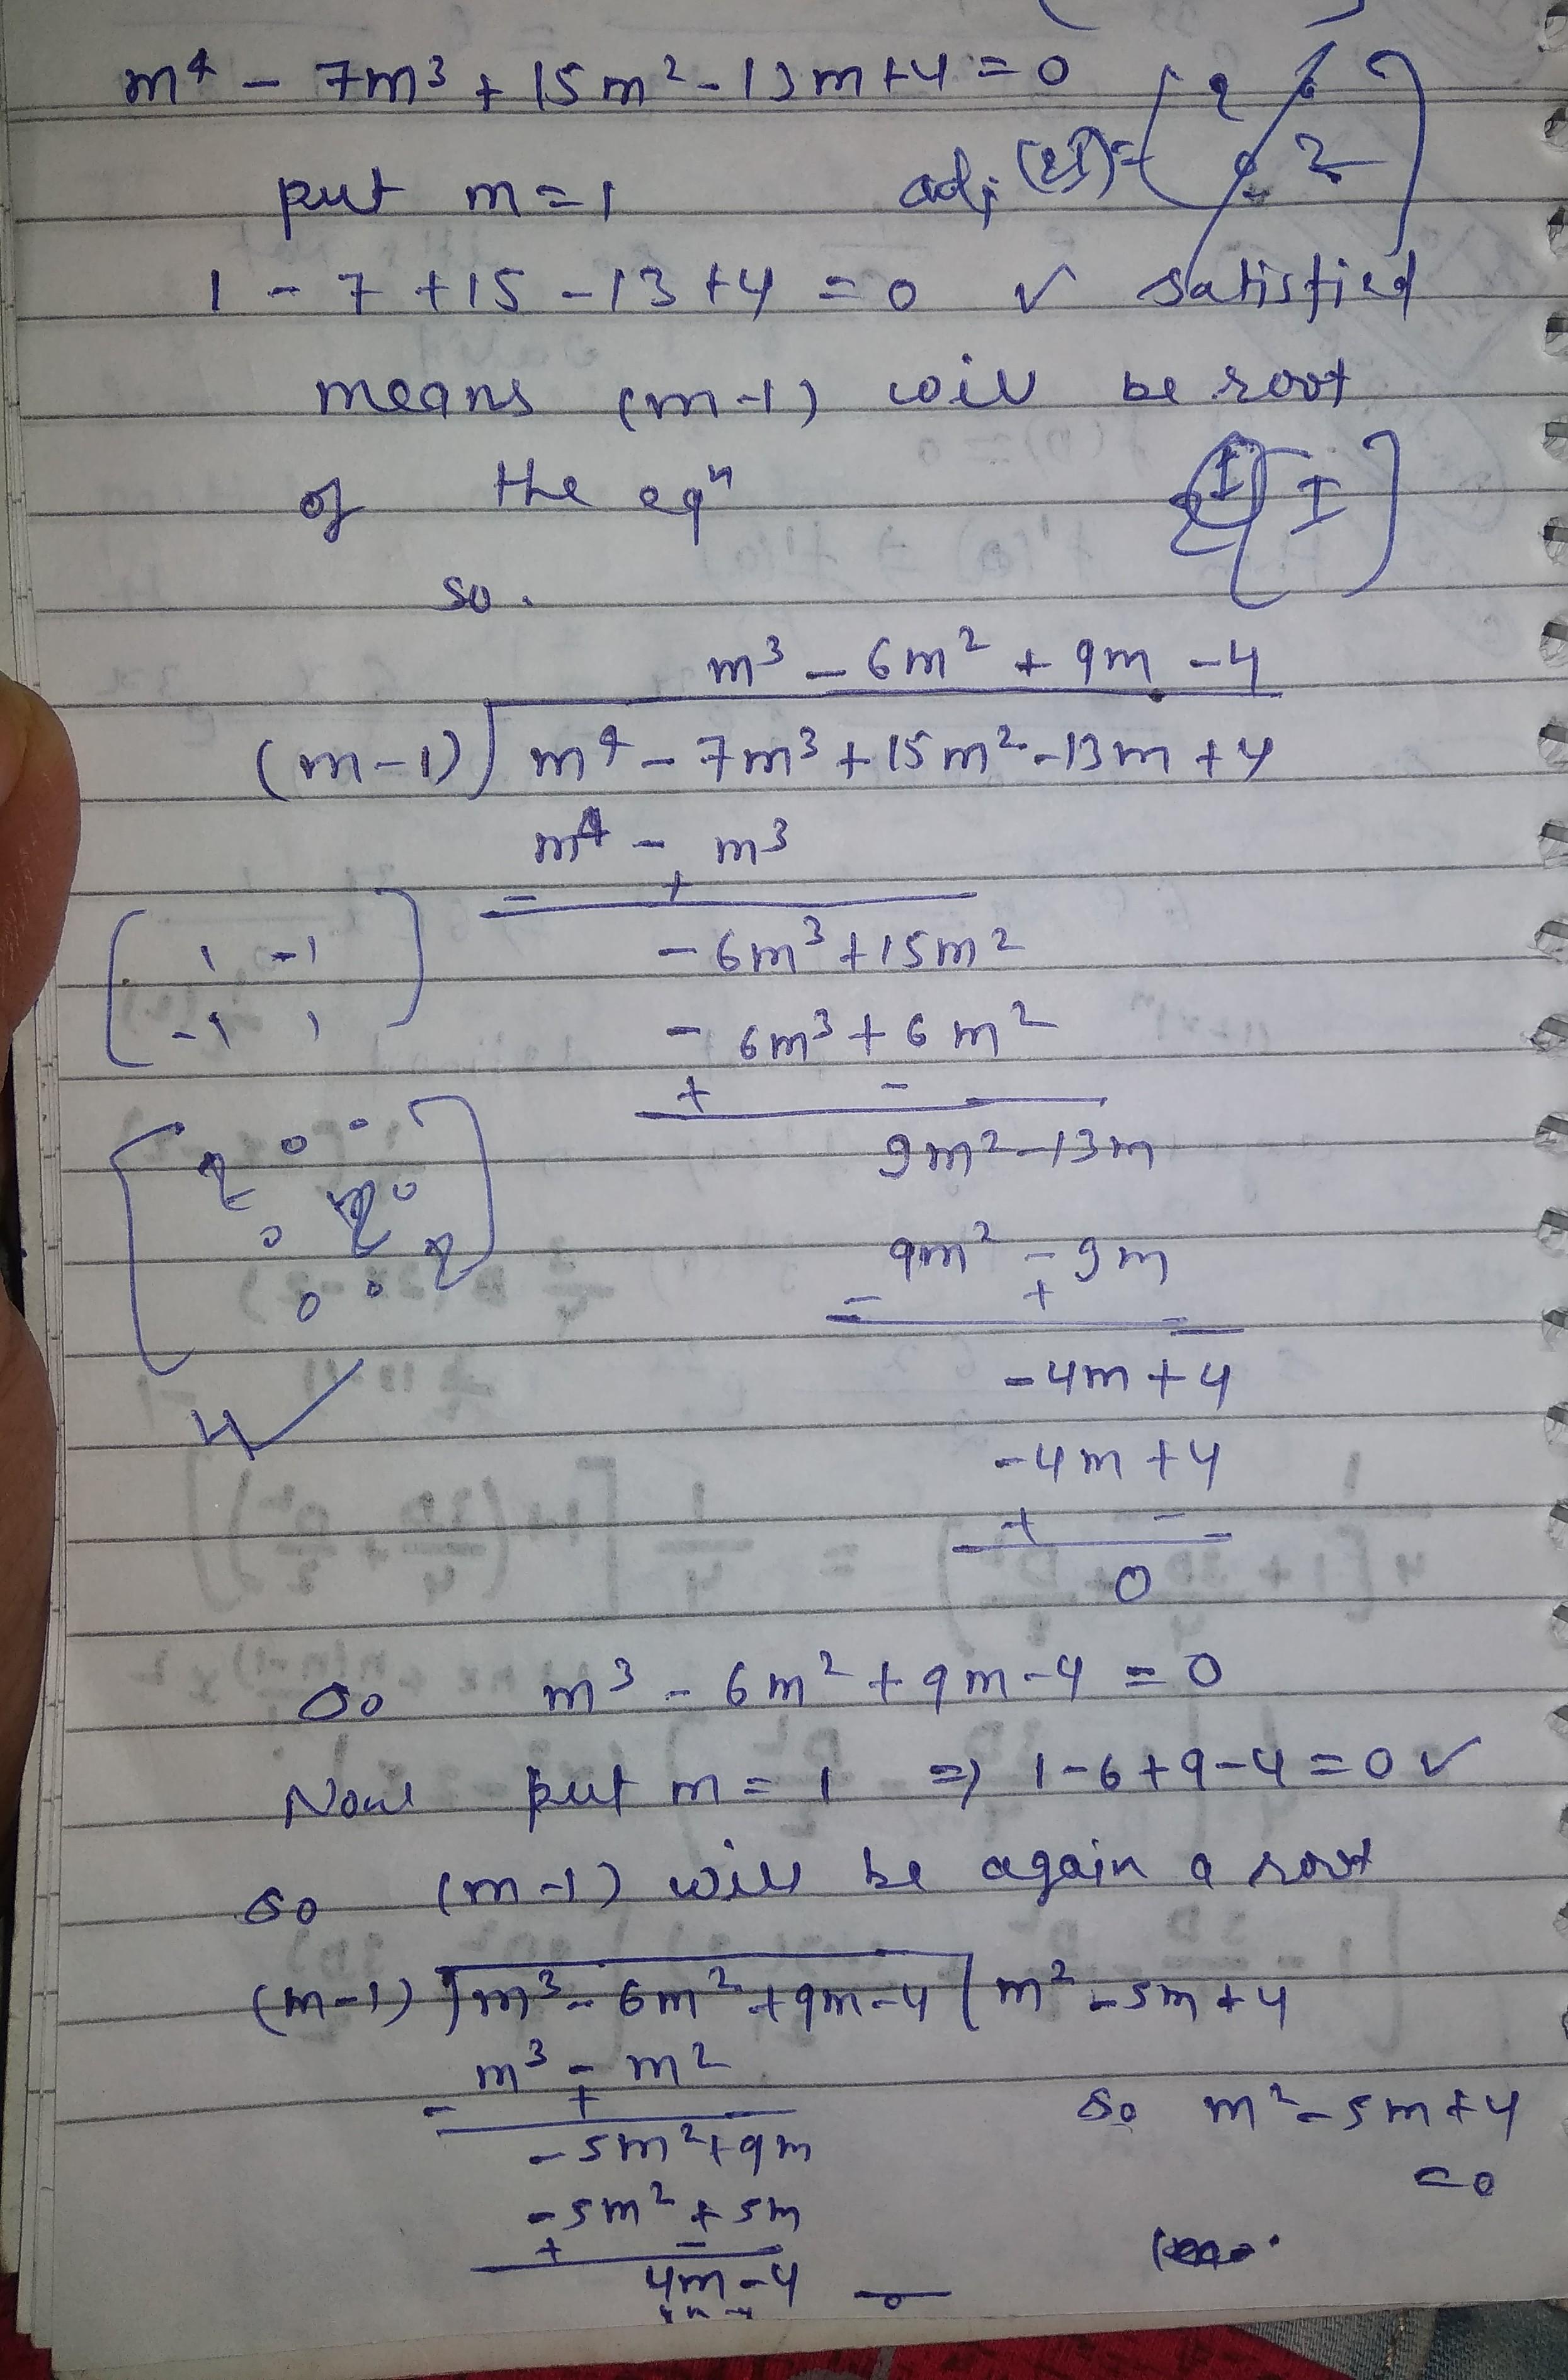 m⁴ - 7m³ + 15m² - 13m + 4 = 0
put m = 1
adj (2I) =
1 - 7 + 15 - 13 + 4 = 0 ✓ satisfied
means (m-1) will be root
of the eqⁿ
I I
so.
m³ - 6m² + 9m - 4
(m-1) m⁴ - 7m³ + 15m² - 13m + 4
m⁴ - m³
- +
- 6m³ + 15m²
- 6m³ + 6m²
+ -
9m² - 13m
9m² - 9m
- +
-4m + 4
-4m + 4
+ -
0
1 -1
-1 1
2 0 0
0 2 0
0 0 2
4 ✓
So m³ - 6m² + 9m - 4 = 0
Now put m = 1 ⇒ 1 - 6 + 9 - 4 = 0 ✓
so (m-1) will be again a root
(m-1) m³ - 6m² + 9m - 4 m² - 5m + 4
m³ - m²
- +
-5m² + 9m
-5m² + 5m
+ -
4m - 4
0
So m² - 5m + 4
= 0